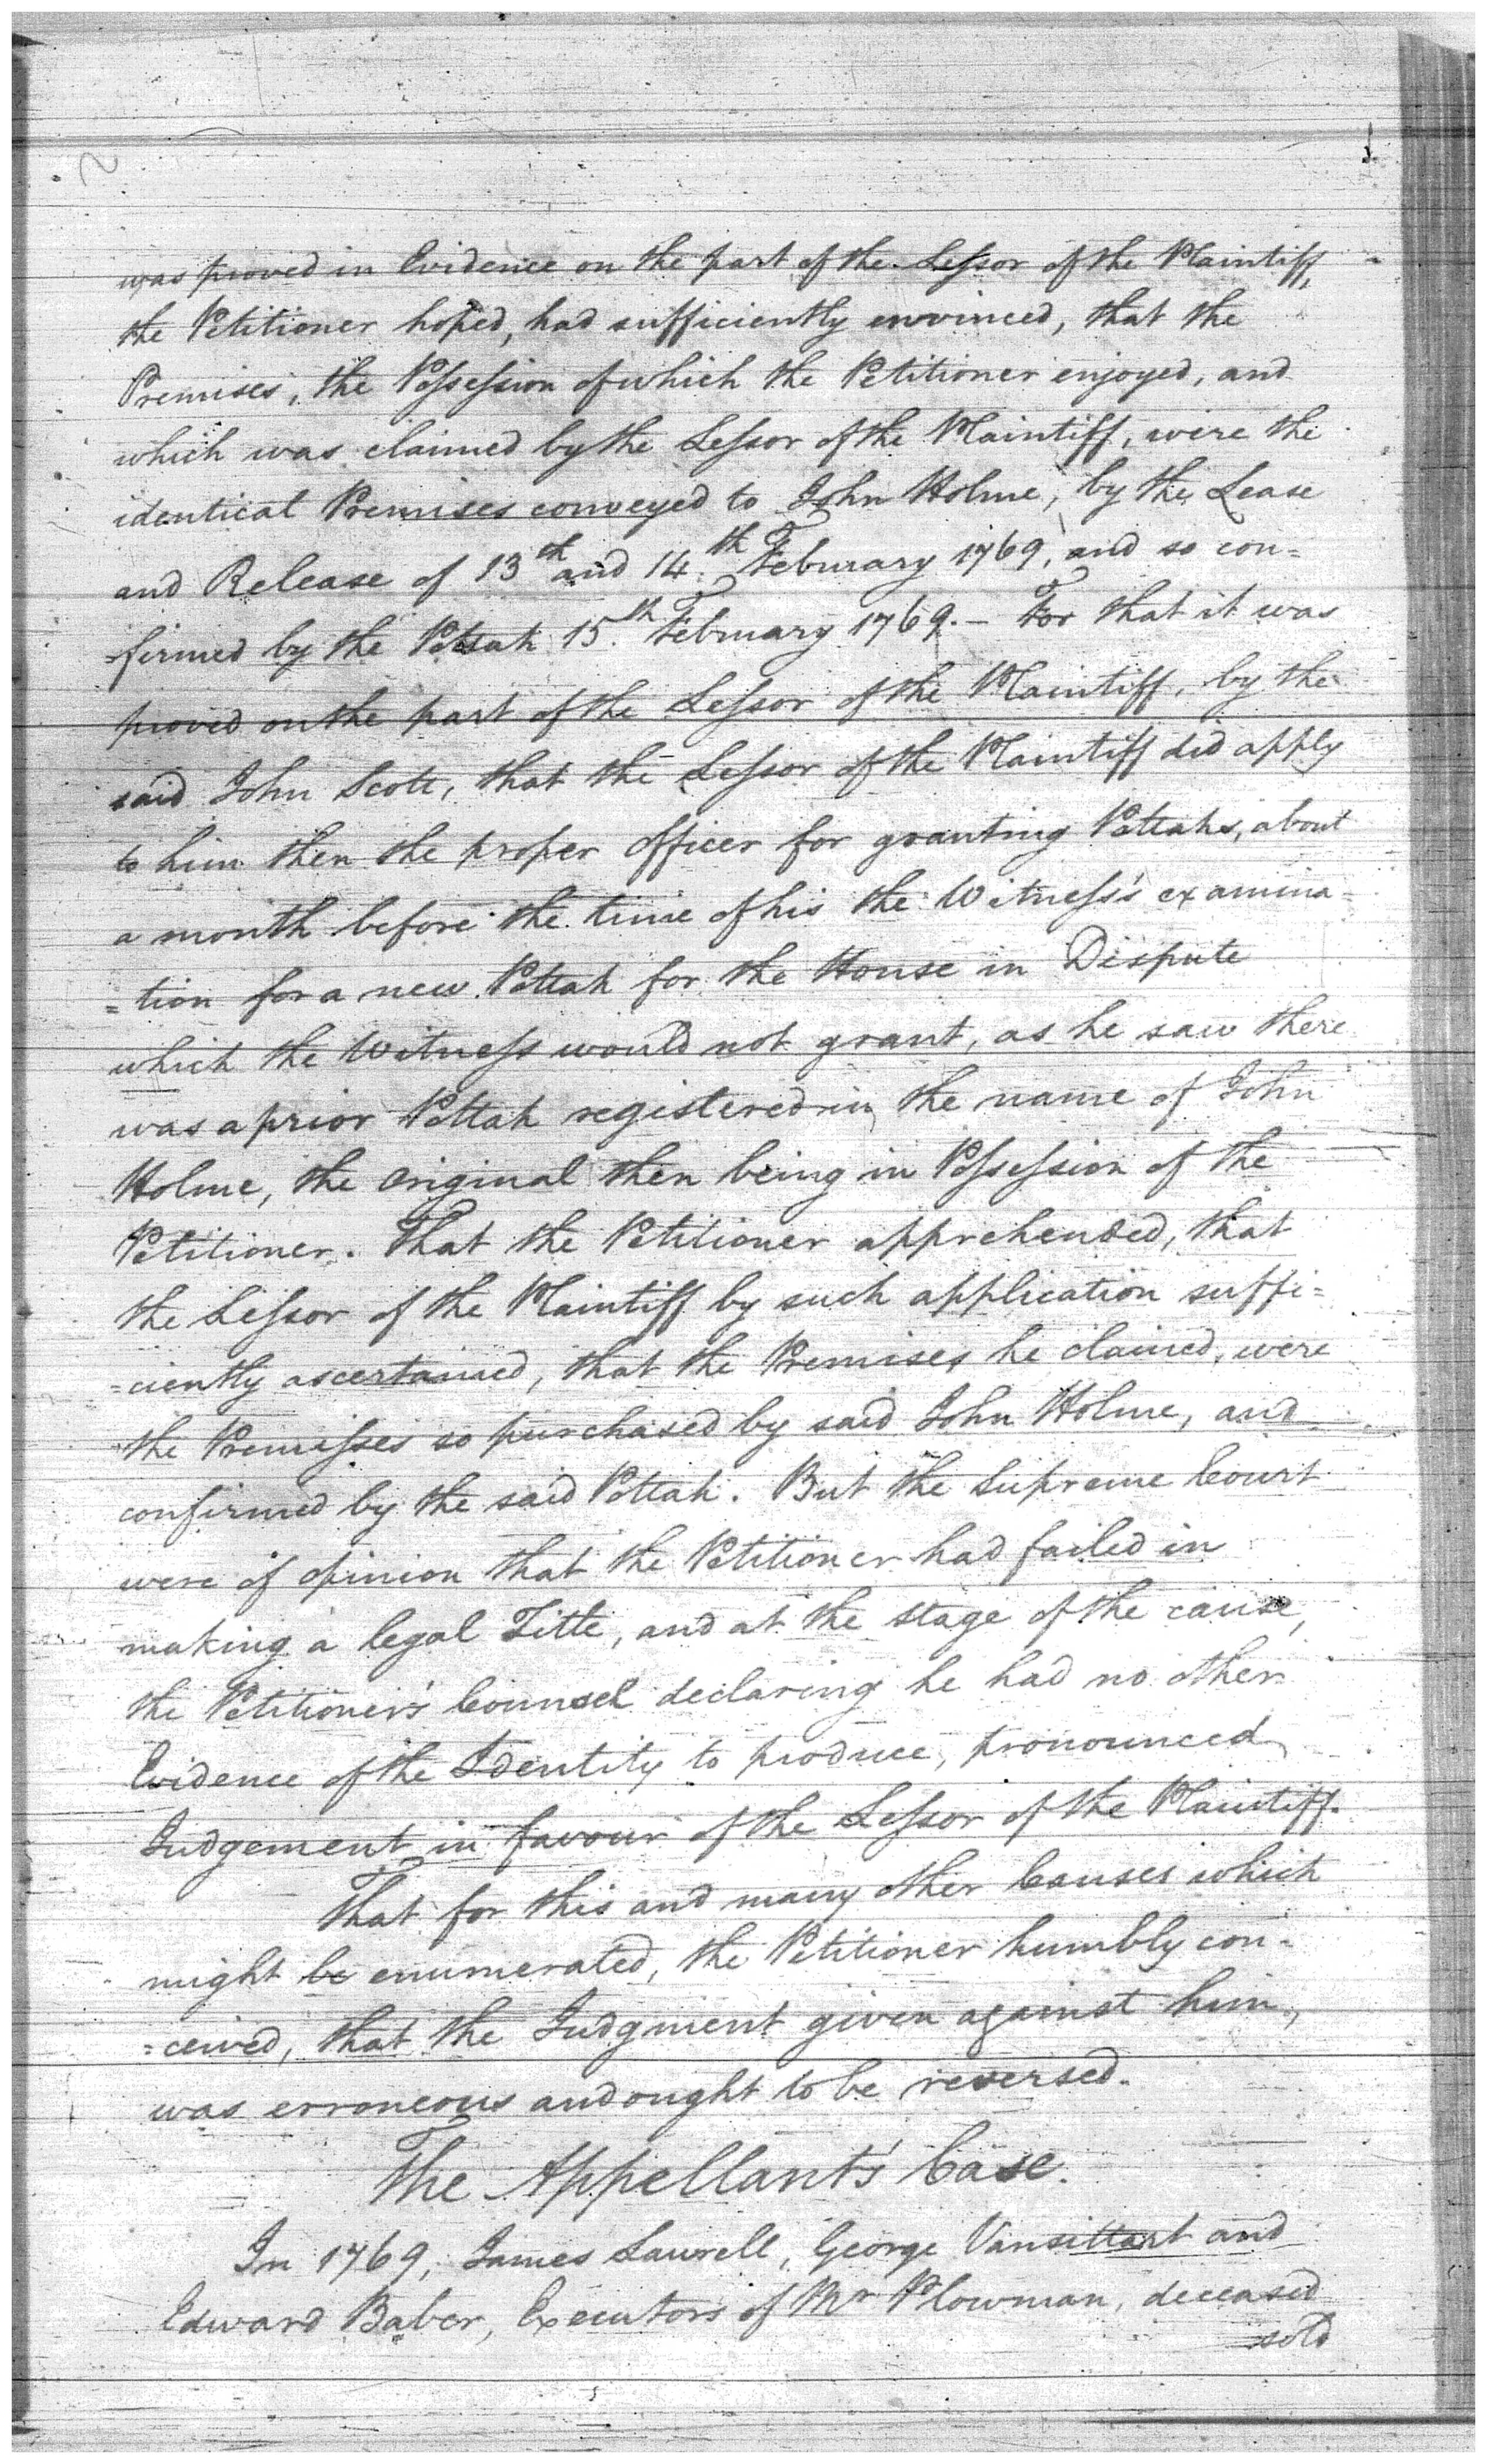 was proved in Evidence on the part of the Lessor of the Plaintiff,
the Petitioner hoped, had sufficiently envinced, that the
Premises, the Possession of which the Petitioner enjoyed, and
which was claimed by the Lessor of the Plaintiff, were the
identical Premises conveyed to John Holme, by the Lease
and Release of 13th and 14th Feburary 1769, and so con=
=firmed by the Pottah 15th February 1769. – For that it was
proved on the part of the Lessor of the Plaintiff, by the
said John Scott, that the Lessor of the Plaintiff did apply
to him then the proper Officer for granting Pottahs, about
a month before the time of his the Witness's examina=
=tion for a new Pottah for the House in Dispute
which the Witness would not grant, as he saw there
was a prior Pottah registered in the name of John
Holme, the Original then being in Possession of the
Petitioner. That the Petitioner apprehended, that
the Lessor of the Plaintiff by such application suffi=
=ciently ascertained, that the Premises he claimed, were
the Premisses so purchased by said John Holme, and
confirmed by the said Pottah. But the Supreme Court
were of opinion that the Petitioner had failed in
making a legal Title, and at the stage of the cause,
the Petitioner's Counsel declaring he had no other
Evidence of the Identity to produce, pronounced
Judgement in favour of the Lessor of the Plaintiff.
That for this and many other Causes which
might be enumerated, the Petitioner humbly con=
=ceived, that the Judgment given against him,
was erroneous and ought to be reversed.
The Appellant's Case.
In 1769, James Lawrell, George Vansittart and
Edward Baber, Executors of Mr Plowman, deceased
sold